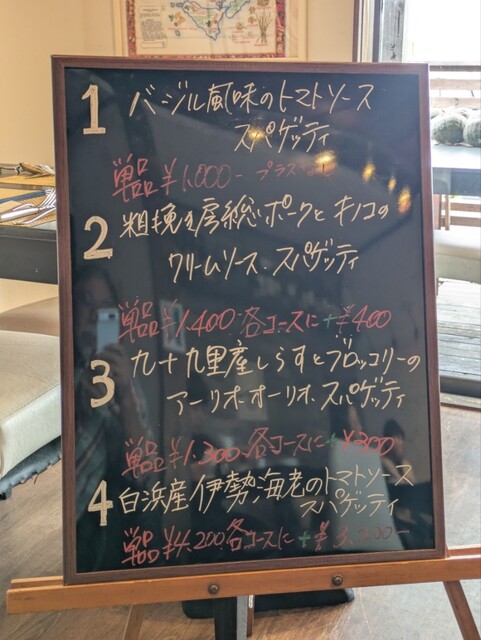 1 バジル風味のトマトソース
スパゲッティ
単品¥1,000- プラス
2 粗挽き房総ポークとキノコの
クリームソース.スパゲッティ
単品¥1,400-各コースに+¥400
3 九十九里産しらすとブロッコリーの
アーリオオーリオ.スパゲッティ
単品¥1,300.各コースに+¥300
4 白浜産伊勢海老のトマトソース
スパゲッティ
単品¥4,200各コースに+